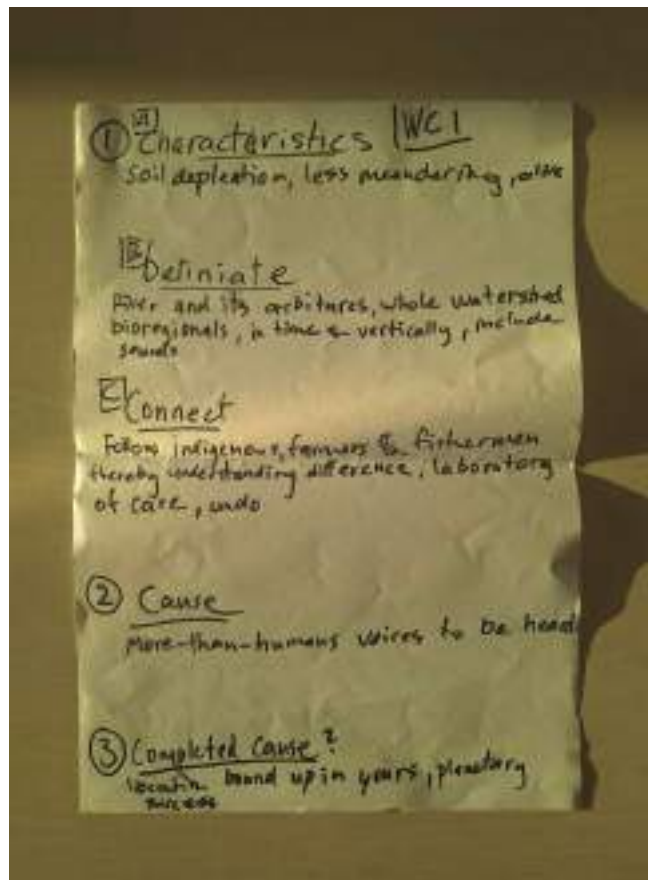 ① A Characteristics WC1
Soil depleation, less meandering,
B Deliniate
River and its arbitures, whole watershed
bioregionals, in time & vertically, include
sounds
C Connect
Follow indigenous, farmers & fishermen
thereby understanding difference, laboratory
of care, undo
② Cause
More-than-humans voices to be heard
③ Completed cause?
bound up in yours, planetary
success